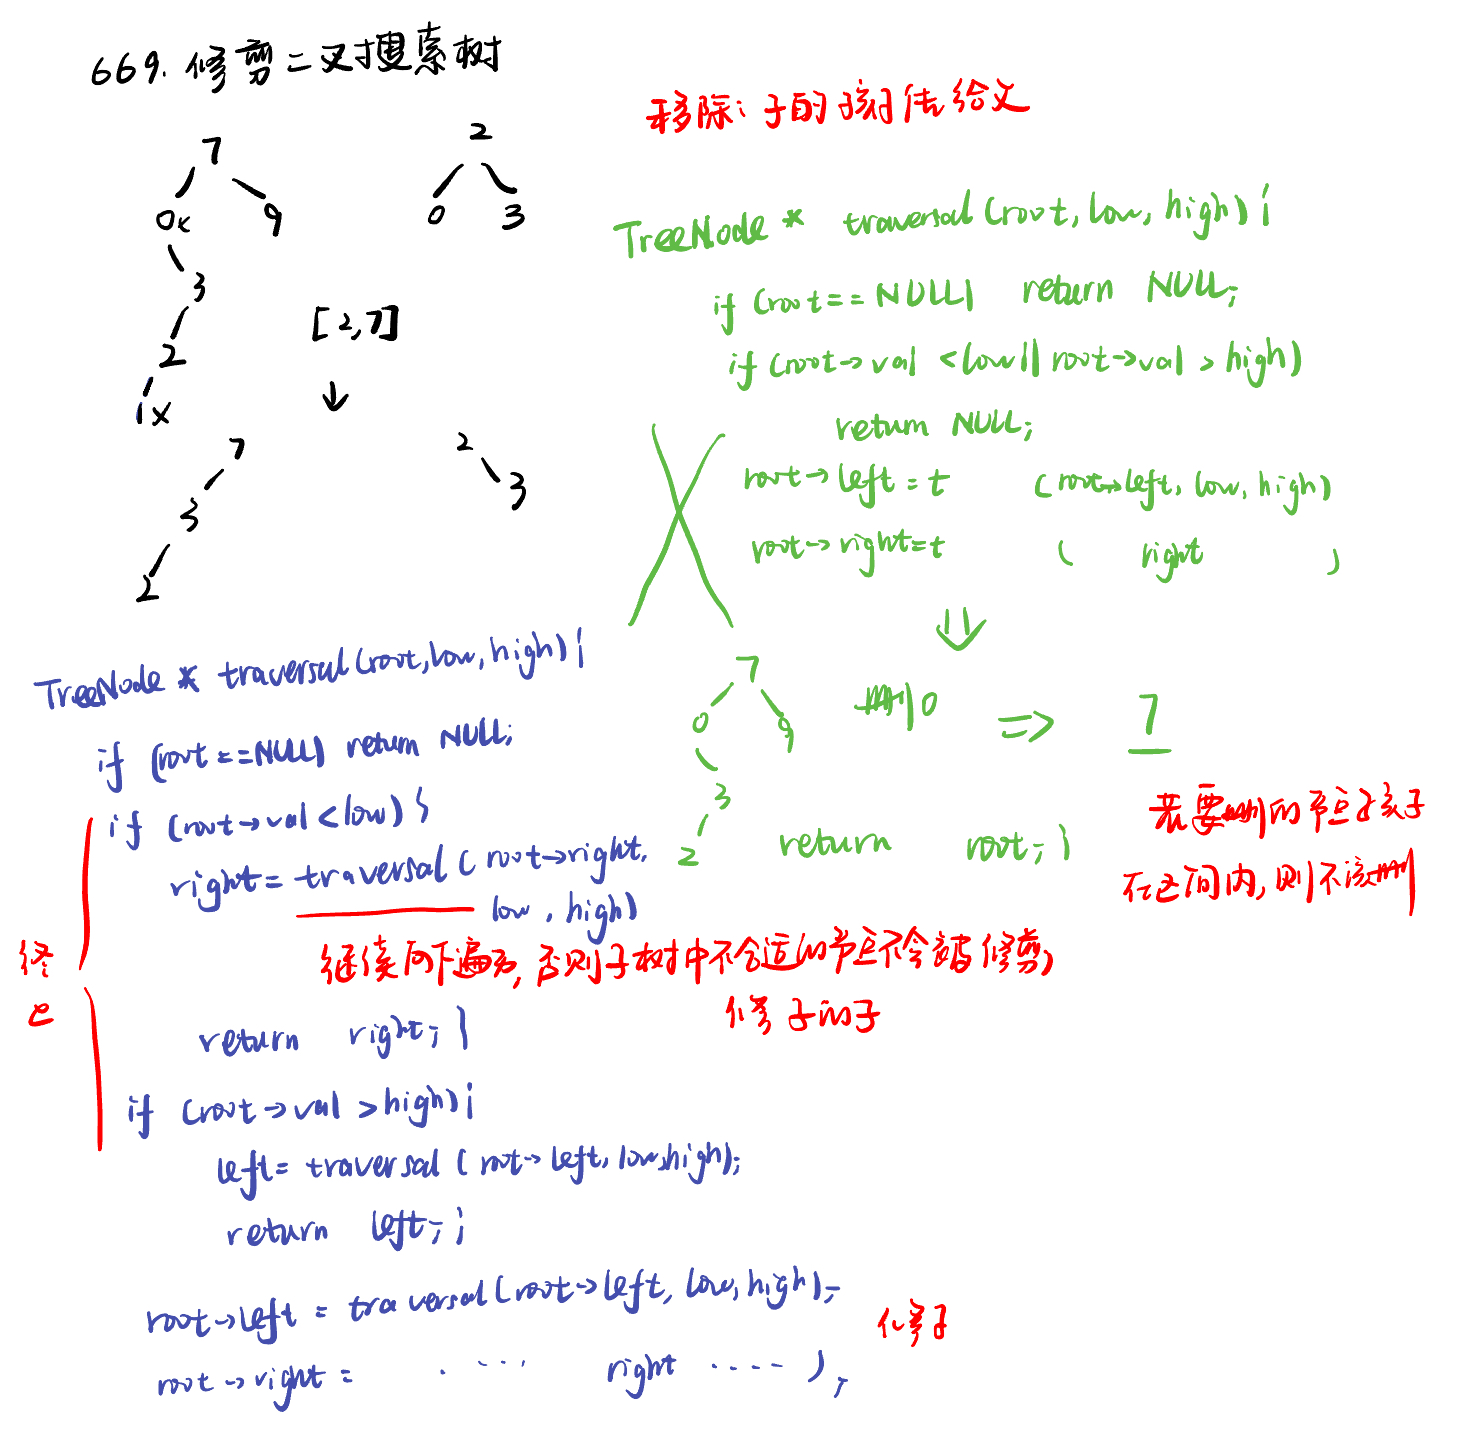 669. 修剪二叉搜索树
移除: 子的孩子传给父
7
0x 9
3
2
1x
2
0 3
[2,7]
↓
7
3
2
2
3
TreeNode * traversal (root, low, high) {
if (root == NULL) return NULL;
if (root->val < low || root->val > high)
return NULL;
root->left = t (root->left, low, high)
root->right = t ( right )
⇓
7
0 9
3
2
删0 => 7
return root; }
若要删的节点孩子
在区间内, 则不该删
TreeNode * traversal (root, low, high) {
if (root == NULL) return NULL;
if (root->val < low) {
right = traversal ( root->right,
low, high)
继续向下遍历, 否则子树中不合适的节点不会被修剪,
修子的子
终止
return right; }
if (root->val > high) {
left = traversal ( root->left, low, high);
return left; }
root->left = traversal (root->left, low, high);
修子
root->right = . ... right .... );